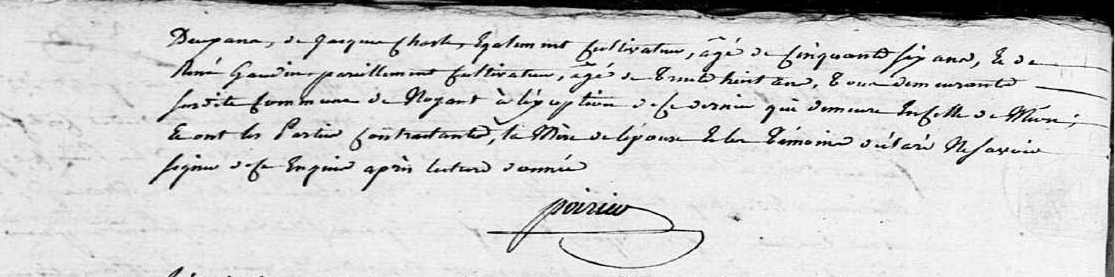 de Jacques Charle, Egalement Cultivateur, âgé de Cinquante Six ans, & de
René Gaudin pareillement Cultivateur, âgé de Trente huit ans, Tous demeurants
Susdite Commune de Noyant à l'éxception de Ce dernier qui demeure En Celle de
& ont les Parties Contractantes, la Mère de l'épouse & les Témoins déclaré Ne Savoir
Signer de Ce Enquis après lecture donnée
poirier